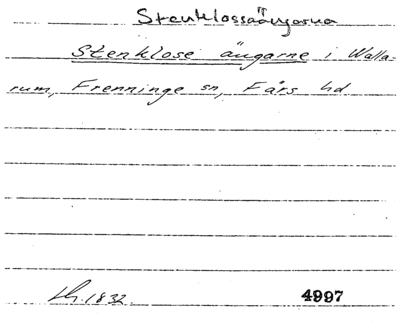 Stenklossaängarna
Stenklose ängarne i Walla-
rum, Frenninge sn, Färs hd
1832.
4997